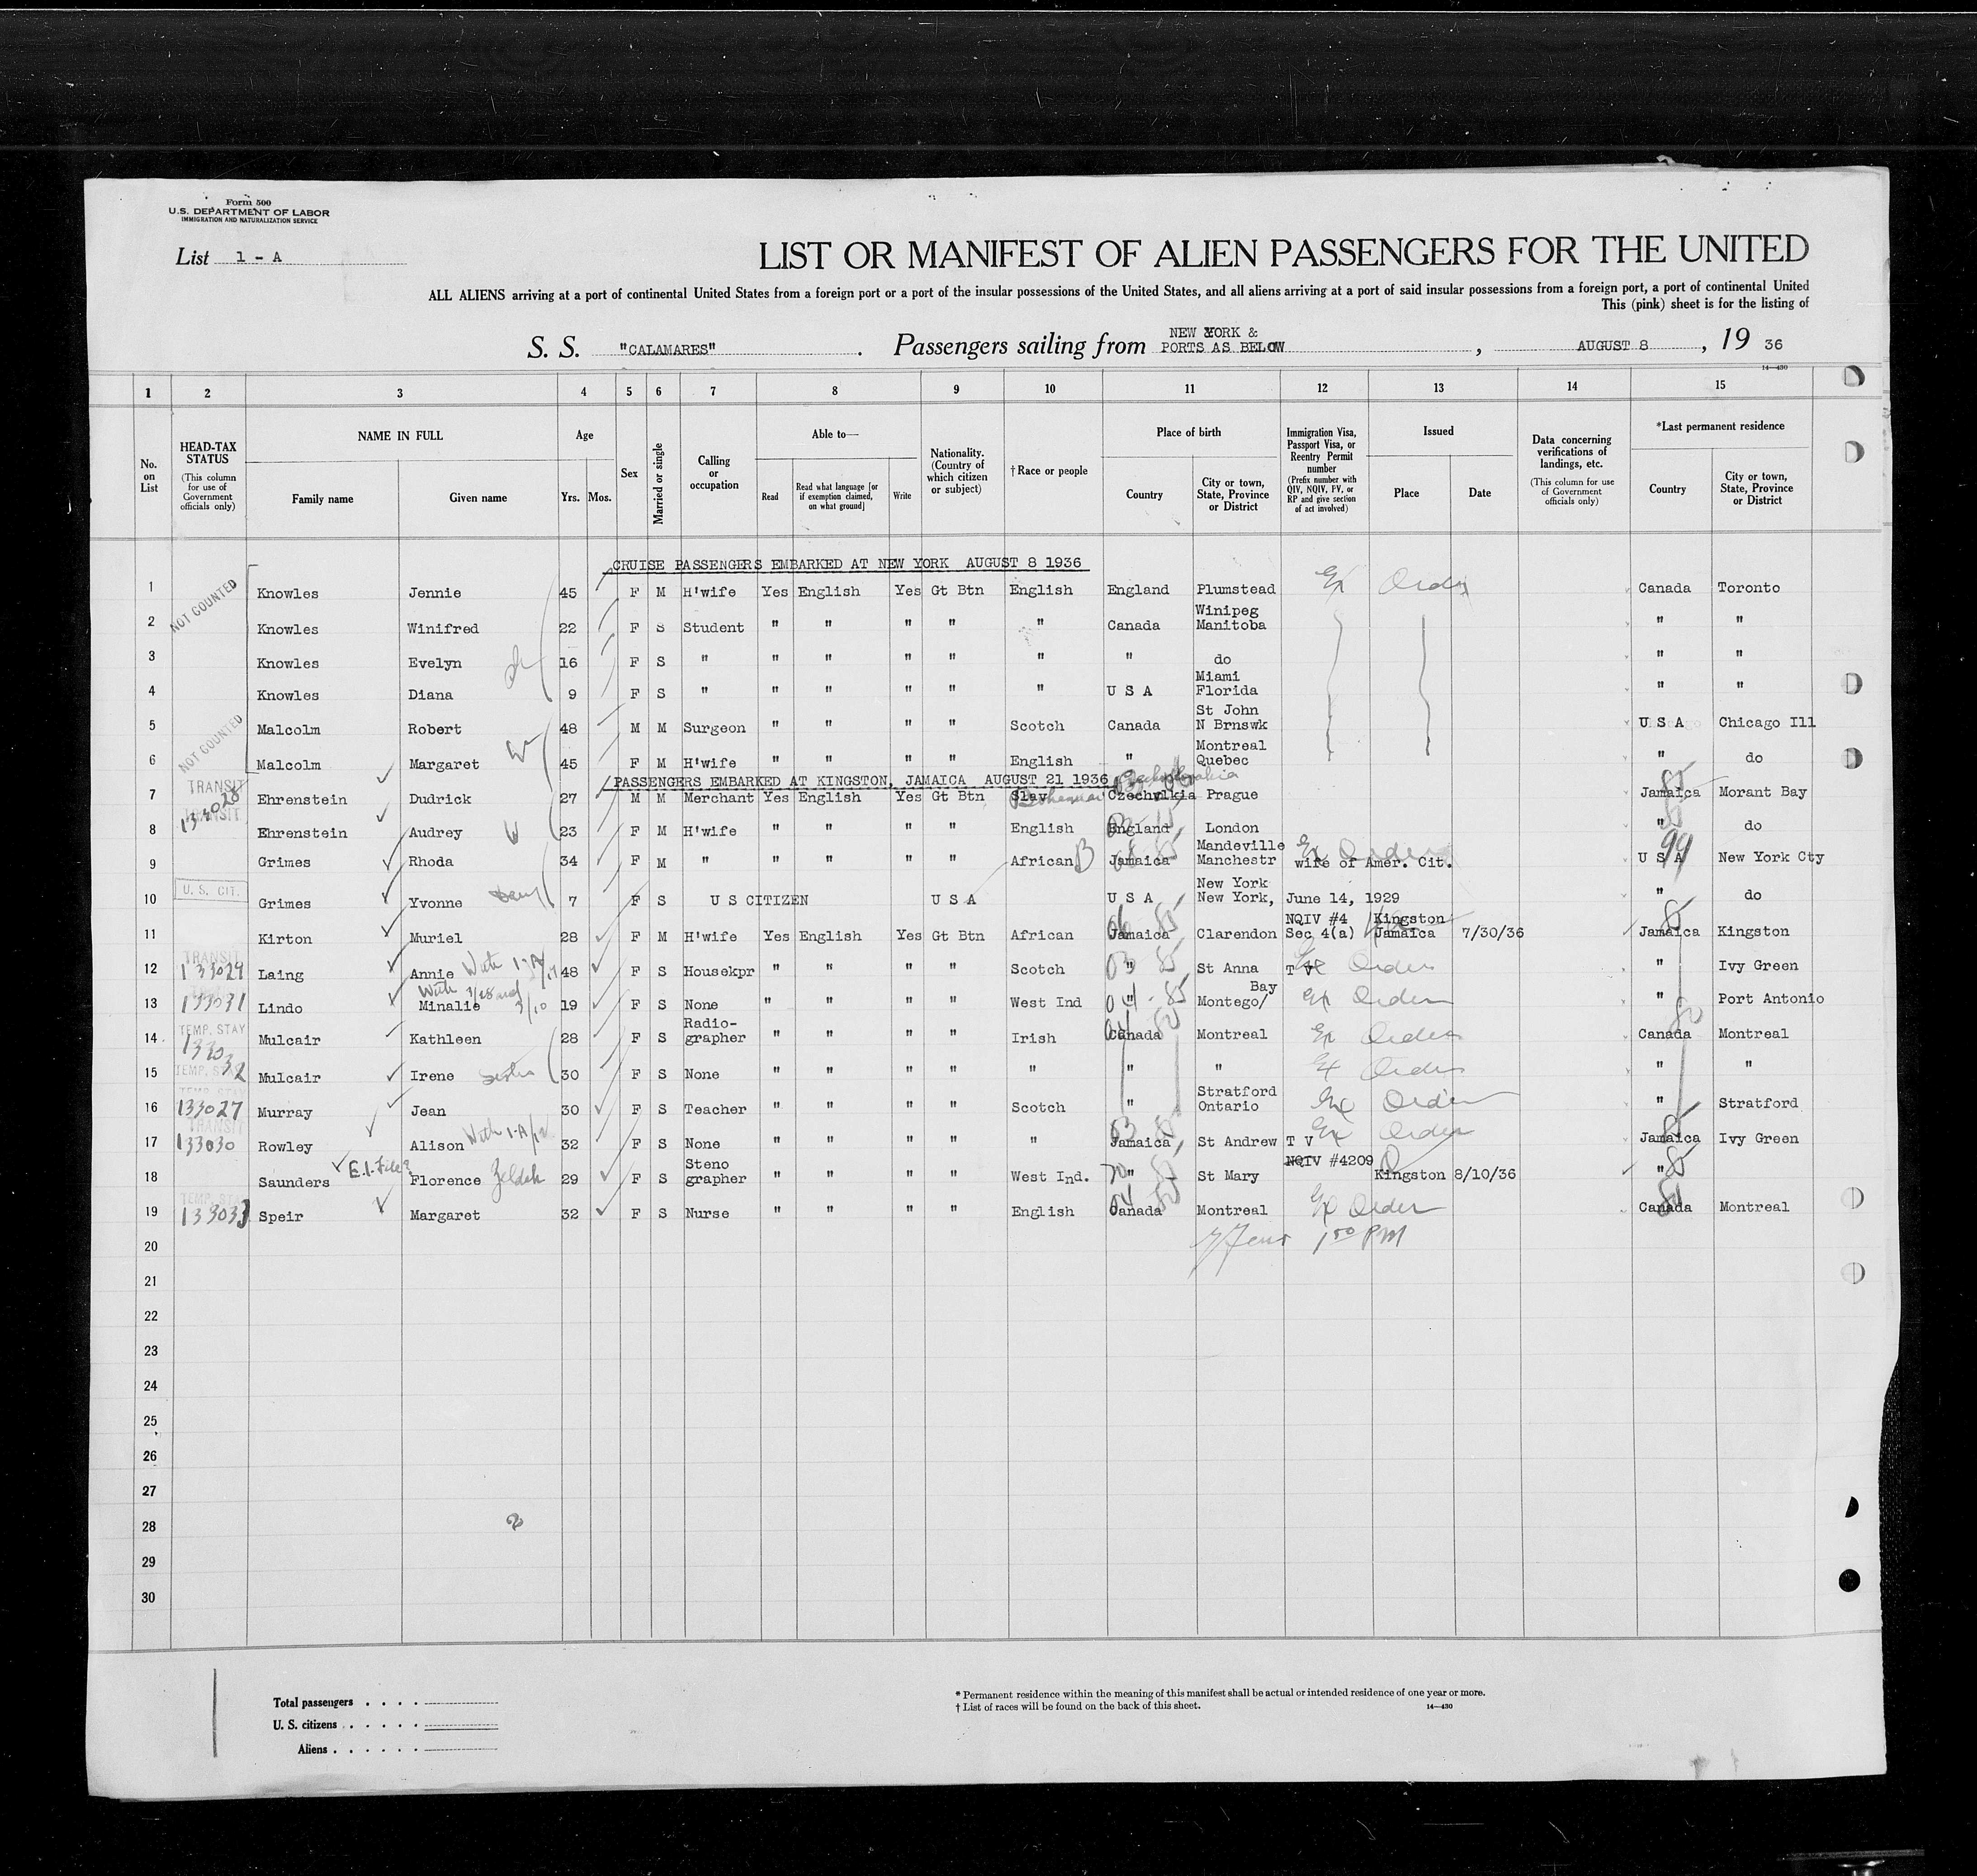 Form 500
U.S. DEPARTMENT OF LABOR
IMMIGRATION AND NATURALIZATION SERVICE
List 1 - A
LIST OR MANIFEST OF ALIEN PASSENGERS FOR THE UNITED
ALL ALIENS arriving at a port of continental United States from a foreign port or a port of the insular possessions of the United States, and all aliens arriving at a port of said insular possessions from a foreign port, a port of continental United
This (pink) sheet is for the listing of
S. S. "CALAMARES". Passengers sailing from NEW YORK & PORTS AS BELOW, AUGUST 8, 19 36
14—430
1 2 3 4 5 6 7 8 9 10 11 12 13 14 15
No. on List
HEAD-TAX STATUS (This column for use of Government officials only)
NAME IN FULL Family name Given name
Age Yrs. Mos.
Sex
Married or single
Calling or occupation
Able to— Read Read what language [or if exemption claimed, on what ground] Write
Nationality. (Country of which citizen or subject)
†Race or people
Place of birth Country City or town, State, Province or District
Immigration Visa, Passport Visa, or Reentry Permit number (Prefix number with QIV, NQIV, PV, or RP and give section of act involved)
Issued Place Date
Data concerning verifications of landings, etc. (This column for use of Government officials only)
*Last permanent residence Country City or town, State, Province or District
CRUISE PASSENGERS EMBARKED AT NEW YORK AUGUST 8 1936
1 NOT COUNTED Knowles Jennie 45 F M H'wife Yes English Yes Gt Btn English England Plumstead Ex Order Canada Toronto
2 Knowles Winifred 22 F S Student " " " " " Canada Winipeg Manitoba " "
3 Knowles Evelyn 16 F S " " " " " " " do " "
4 Knowles Diana 9 F S " " " " " " U S A Miami Florida " "
5 NOT COUNTED Malcolm Robert 48 M M Surgeon " " " " Scotch Canada St John N Brnswk U S A Chicago Ill
6 Malcolm Margaret W 45 F M H'wife " " " " English " Montreal Quebec " do
PASSENGERS EMBARKED AT KINGSTON, JAMAICA AUGUST 21 1936
7 TRANSIT 133028 Ehrenstein Dudrick 27 M M Merchant Yes English Yes Gt Btn Slav Bohemian Czechvlkia Prague Jamaica Morant Bay
8 TRANSIT Ehrenstein Audrey W 23 F M H'wife " " " " English England London " do
9 Grimes Rhoda 34 F M " " " " " African B Jamaica Mandeville Manchestr Ex Order wife of Amer. Cit. U S A 99 New York Cty
10 U. S. CIT. Grimes Yvonne 7 F S U S CITIZEN U S A U S A New York New York, June 14, 1929 " do
11 Kirton Muriel 28 F M H'wife Yes English Yes Gt Btn African Jamaica Clarendon NQIV #4 Sec 4(a) Kingston Jamaica 7/30/36 Jamaica Kingston
12 TRANSIT 133029 Laing Annie With 1-A/17 48 F S Housekpr " " " " Scotch 03 " 85 St Anna T V Ex Order " Ivy Green
13 133031 Lindo Minalie With 3/28 and 3/10 19 F S None " " " " West Ind 04 " 85 Montego/ Bay Ex Order " Port Antonio
14 TEMP. STAY 13303 Mulcair Kathleen 28 F S Radio-grapher " " " " Irish Canada Montreal Ex Order Canada Montreal
15 TEMP. STAY 2 Mulcair Irene Sister 30 F S None " " " " " " " Ex Order " "
16 133027 Murray Jean 30 F S Teacher " " " " Scotch " Stratford Ontario Ex Order " Stratford
17 TRANSIT 133030 Rowley Alison With 1-A/12 32 F S None " " " " " Jamaica St Andrew T V Ex Order Jamaica Ivy Green
18 Saunders E.I. File? Florence Zeldah 29 F S Steno grapher " " " " West Ind. " St Mary NQIV #4209 Kingston 8/10/36 " 85
19 TEMP. STAY 133033 Speir Margaret 32 F S Nurse " " " " English Canada Montreal Ex Order Canada Montreal
20 1 50 PM
21
22
23
24
25
26
27
28
29
30
Total passengers
U. S. citizens
Aliens
* Permanent residence within the meaning of this manifest shall be actual or intended residence of one year or more.
† List of races will be found on the back of this sheet. 14—430